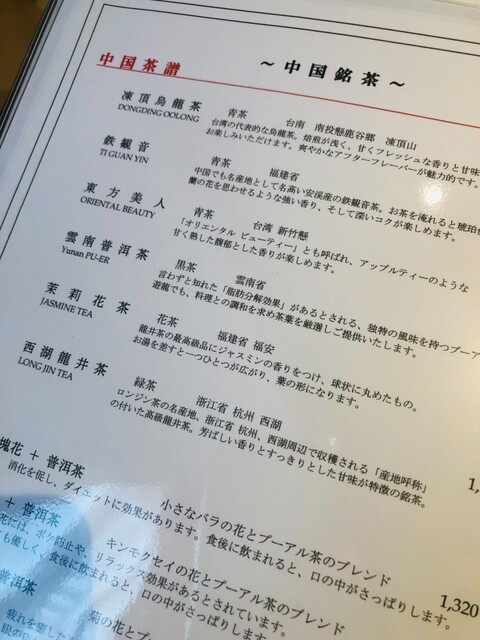 ～中国銘茶～
中国茶譜
凍頂烏龍茶 青茶 台南 南投懸鹿谷郷 凍頂山
DONGDING OOLONG 台湾の代表的な烏龍茶。焙煎が浅く、甘くフレッシュな香りと甘味
お楽しみいただけます。爽やかなアフターフレーバーが魅力的です。
鉄観音 青茶 福建省
TI GUAN YIN 中国でも名産地として名高い安渓産の鉄観音茶。お茶を淹れると琥珀
蘭の花を思わせるような強い香り、そして深いコクが楽しめます。
東方美人 青茶 台湾 新竹懸
ORIENTAL BEAUTY 「オリエンタル ビューティー」とも呼ばれ、アップルティーのような
甘く熟した馥郁とした香りが楽しめます。
雲南普洱茶 黒茶 雲南省
Yunan PU-ER 言わずと知れた「脂肪分解効果」があるとされる、独特の風味を持つプーア
遊龍でも、料理との調和を求め茶葉を厳選しご提供いたします。
茉莉花茶 花茶 福建省 福安
JASMINE TEA 龍井茶の最高級品にジャスミンの香りをつけ、球状に丸めたもの。
お湯を差すと一つひとつが広がり、葉の形になります。
西湖龍井茶 緑茶 浙江省 杭州 西湖
LONG JIN TEA ロンジン茶の名産地、浙江省 杭州、西湖周辺で収穫される「産地呼称」
の付いた高級龍井茶。芳ばしい香りとすっきりとした甘味が特徴の銘茶。
1,
瑰花 ＋ 普洱茶 小さなバラの花とプーアル茶のブレンド
消化を促し、ダイエットに効果があります。食後に飲まれると、口の中がさっぱりします。
1,320
＋ 普洱茶 キンモクセイの花とプーアル茶のブレンド
花には、ボケ防止や、リラックス効果があるとされています。
も優しく、食後に飲まれると、口の中がさっぱりします。
普洱茶 菊の花とプ
疲れを癒した